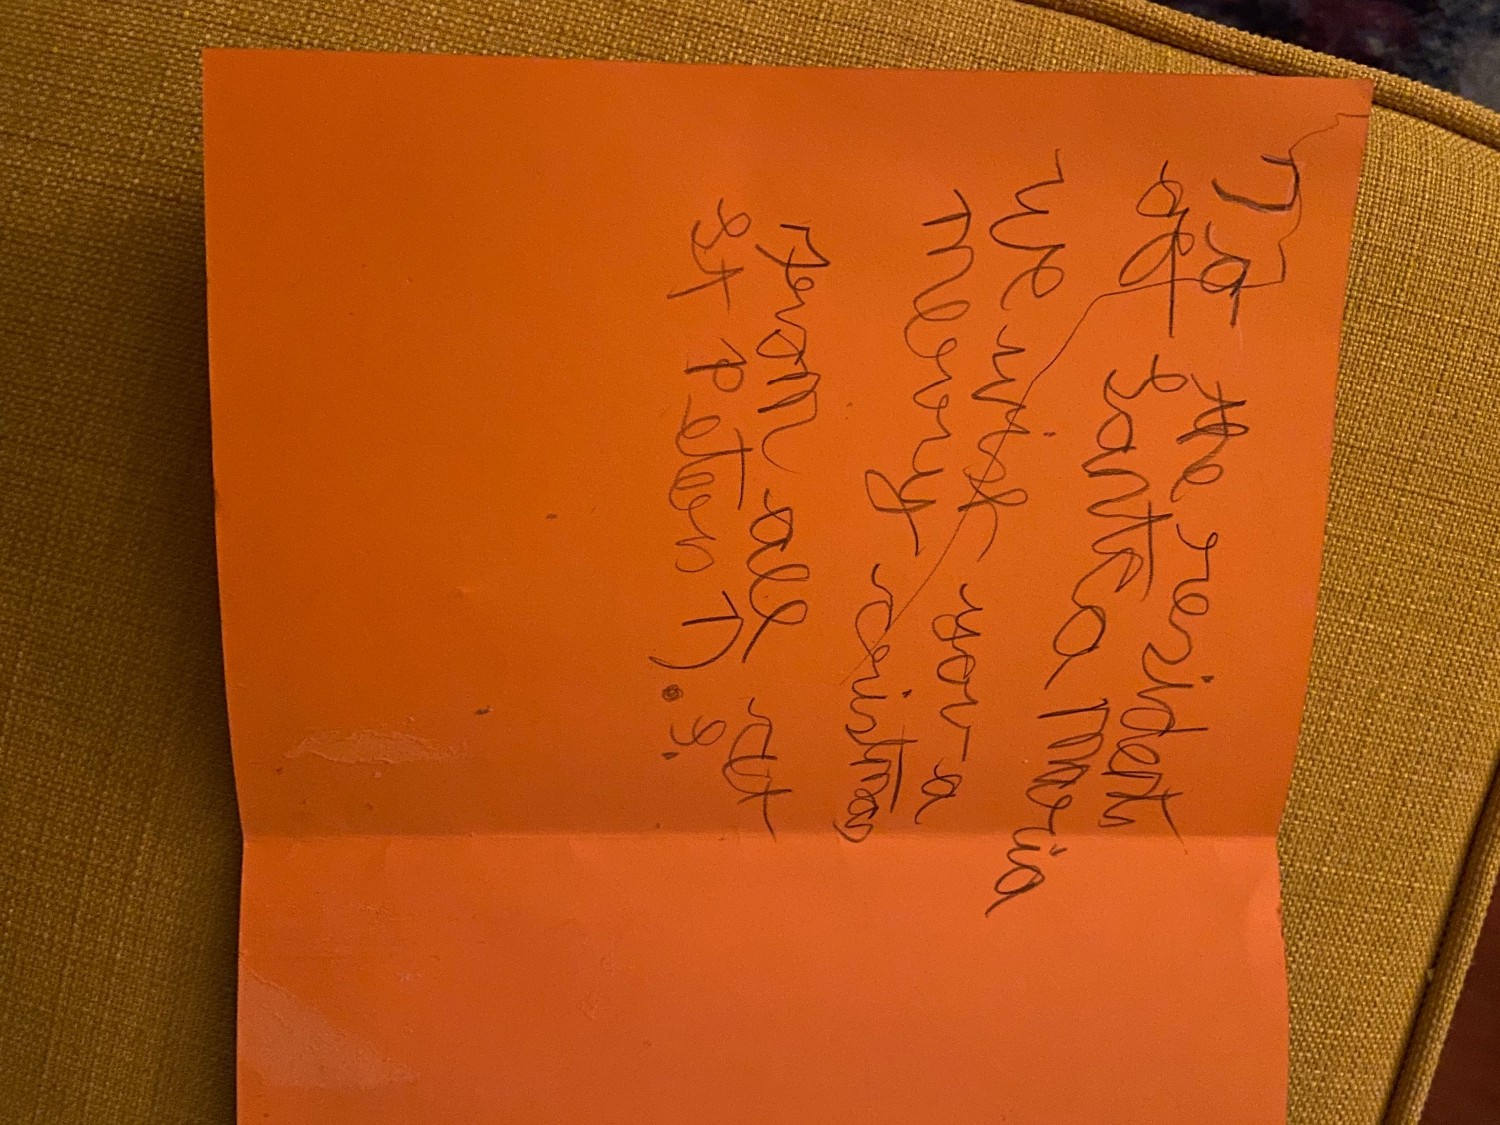 To the resident
of Santa Maria
we wish you a
merry cristmas
from all cut
St Peter J. S.